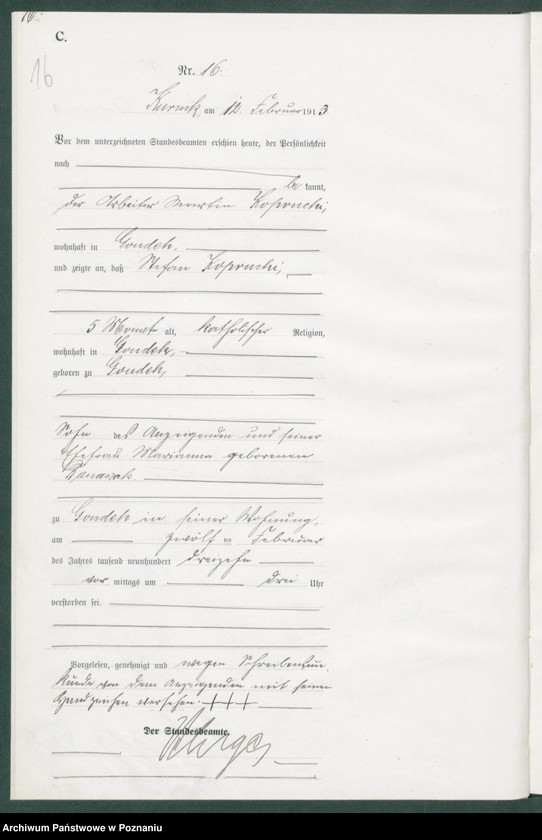 C.
16
Nr. 16.
Kurnik, am 12. Februar 1913
Vor dem unterzeichneten Standesbeamten erschien heute, der Persönlichkeit
nach
be kannt,
der Arbeiter Martin
wohnhaft in Gondek.
und zeigte an, daß Stefan
5 Monat alt, katholischer Religion,
wohnhaft in Gondek,
geboren zu Gondek,
Sohn des Anzeigenden und seiner
Ehefrau Marianna geborenen
zu Gondek in seiner Wohnung,
am zwölf ten Februar
des Jahres tausend neunhundert dreizehn
vor mittags um drei Uhr
verstorben sei.
Vorgelesen, genehmigt und wegen Schreibensun-
kunde von dem Anzeigenden mit seinem
Handzeichen versehen. +++
Der Standesbeamte.
Archiwum Państwowe w Poznaniu